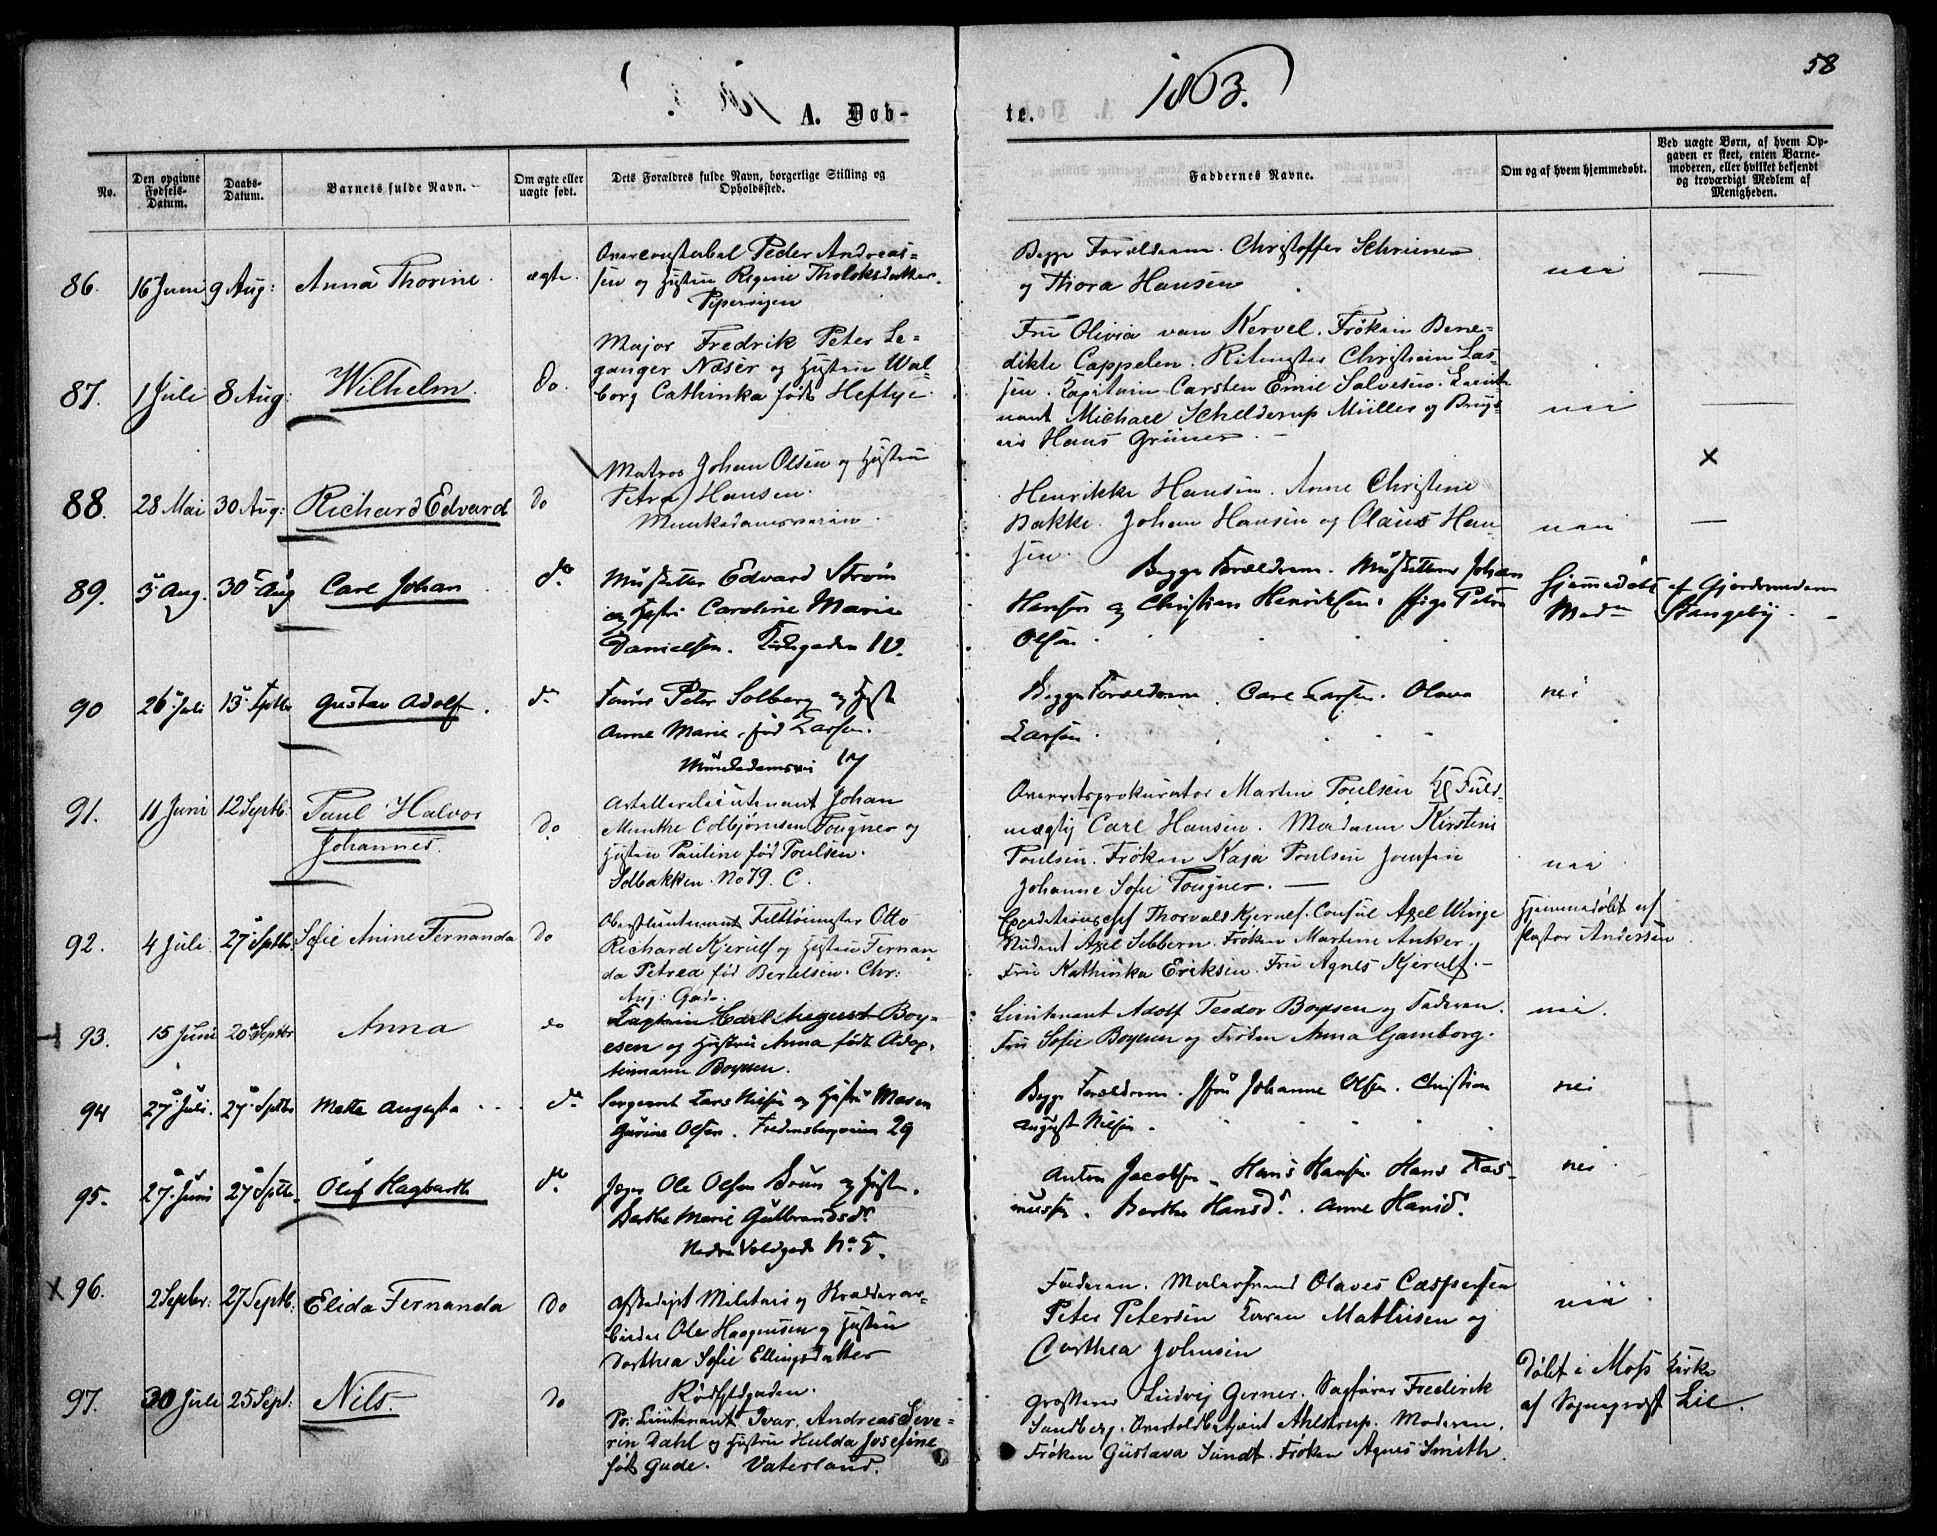 58
1863.
A. Døb-
te.
No.
Den opgivne Fødsels-Datum.
Daabs-Datum.
Barnets fulde Navn.
Om ægte eller uægte født.
Dets Forældres fulde Navn, borgerlige Stilling og Opholdssted.
Faddernes Navne.
Om og af hvem hjemmedøbt.
Ved uægte Børn, af hvem Opgaven er skeet, enten Barnemoderen, eller hvilket bekjendt og troværdigt Medlem af Menigheden.
86. 16 Juni 9 Aug: Anna Thorine. ægte.
Peder Andreas-
sen og Hustru Regine
Pipervigen
Begge Forældrene. Christoffer
og Thora Hansen
nei
87. 1 Juli 8 Aug: Wilhelm. Do.
Major Fredrik Peter Le-
ganger Næser og Hustru Wal-
borg Cathinka født Heftye.
Fru Olivia van Kervel. Frøken Bene-
dikte Cappelen. Ritmester Christian Las-
sen. Kapitain Carsten Emil Salvesen. Lieute-
nant Michael Schelderup Müller og
Hans Grüner.
nei
88. 28 Mai 30 Aug: Richard Edvard Do
Matros Johan Olsen og Hustru
Petra Hansen.
Munkedamsveien.
Henrikke Hansen. Anne Christine
Bakke. Johan Hansen og Olaus Han-
sen.
nei
89. 5 Aug. 30 Aug Carl Johan do
Edvard Strøm
og Hustru Caroline Marie
Danielsen. 10.
Begge Forældrene. Johan
Hansen og Christian Henriksen. Pige Petra
Olsen.
Hjemmedøbt af Gjordemoderen
Mad. Stangeby.
90 26 Juli 13 Septbr Gustav Adolf. do
Peter Solberg og Hustr
Anne Marie, fød Larsen.
Munkedamsvei 17
Begge Forældrene. Carl Larsen. Olava
Larsen.
nei
91. 11 Juni 12 Septb. Paul Halvor
Johannes. Do
Artillerilieutenant Johan
Munthe Colbjørnsen Tougner og
Hustru Pauline fød Poulsen.
No 79. C.
Overretsprokurator Martin Poulsen Fuld-
mægtig Carl Hansen. Madam Kirstine
Poulsen. Frøken Kaja Poulsen Jomfru
Johanne Sofie Tougner.
nei
92. 4 Juli. 27 Septbr. Sofie Anine Fernanda Do
Oberstlieutenant Felttøimester Otto
Richard Kjerulf og Hustru Fernan
da Petrea fød Bertelsen. Chr:
Aug: Gade.
Expeditionschef Thorvald Kjerulf. Consul Axel Winge
Student Axel Sibbern. Frøken Martine Anker,
Fru Kathinka Eriksen. Fru Agnes Kjerulf.
Hjemmedøbt af
Pastor Andersen
93. 15 Juni 20 Septbr Anna do
Captein Carl August Boy-
esen og Hustru Anna født
Boysen.
Lieutenant Adolf Teodor Boysen og Faderen.
Fru Sofie Boysen og Frøken Anna Gamborg.
nei.
94 27 Juli. 27 Septbr Mette Augusta do
Sergeant Lars Nielsen og Hustru Maren
Gurine Olsen. Fredensborgveien 29
Begge Forældrene. Jfru Johanne Olsen. Christian
August Nielsen.
nei
95. 27 Juni 27 Septbr. Oluf Hagbarth do.
Jæger Ole Olsen Bruun og Hustru.
Berthe Marie Gulbrandsdr.
Nedre Voldgade No. 5.
Anton Jacobsen. Hans Hansen. Hans Ras-
mussen. Berthe Hansdr. Anne Hansdr.
nei
x 96. 2 Septbr: 27 Septb: Elida Fernanda Do
Afskediget Militair og
Ole Haagensen og Hustru
Dorthea Sofie Ellingsdatter
Rødfyldgaden.
Faderen. Malersvend Olaves Caspersen
Peter Petersen Karen Mathisen og
Dorthea Johnsen
nei
97. 30 Juli 25 Sept: Nils. Do
Pr: Lieutenant Ivar Andreas Seve-
rin Dahl og Hustru Hulda Josefine
født Gude. Vaterland.
Grosserer Ludvig Gerner. Sagfører Frederik
Sundberg. Ahlstrup. Moderen.
Frøken Gustava Sundt. Frøken Agnes Smith.
Døbt i Moss Kirke
af Sognepræst Lie.